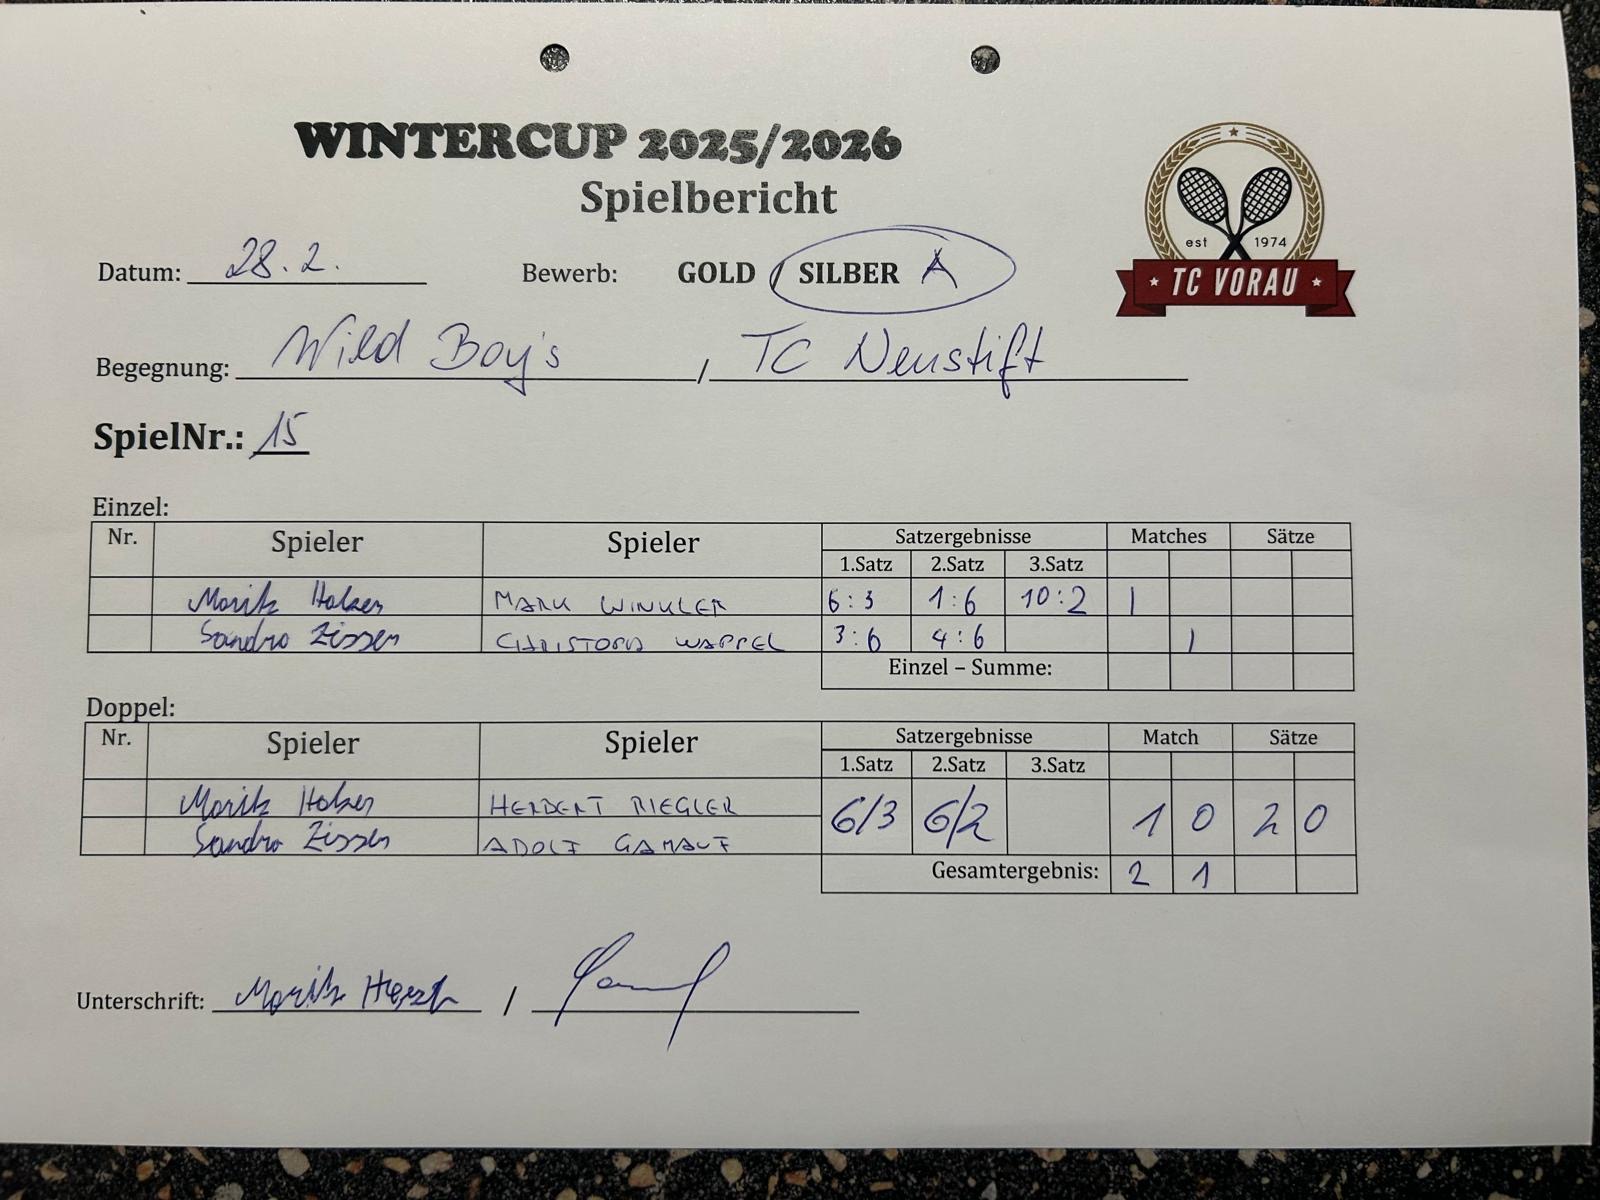 WINTERCUP 2025/2026
Spielbericht
est 1974
TC VORAU
Datum: 28.2. Bewerb: GOLD / SILBER A
Begegnung: Wild Boy's / TC Neustift
SpielNr.: 15
Einzel:
Nr. Spieler Spieler Satzergebnisse Matches Sätze
1.Satz 2.Satz 3.Satz
Moritz MARK WINKLER 6:3 1:6 10:2 1
Sandro CHRISTOPH WAPPEL 3:6 4:6 1
Einzel – Summe:
Doppel:
Nr. Spieler Spieler Satzergebnisse Match Sätze
1.Satz 2.Satz 3.Satz
Moritz HERBERT RIEGLER 6/3 6/2 1 0 2 0
Sandro ADOLF GAMAUF
Gesamtergebnis: 2 1
Unterschrift: Moritz /